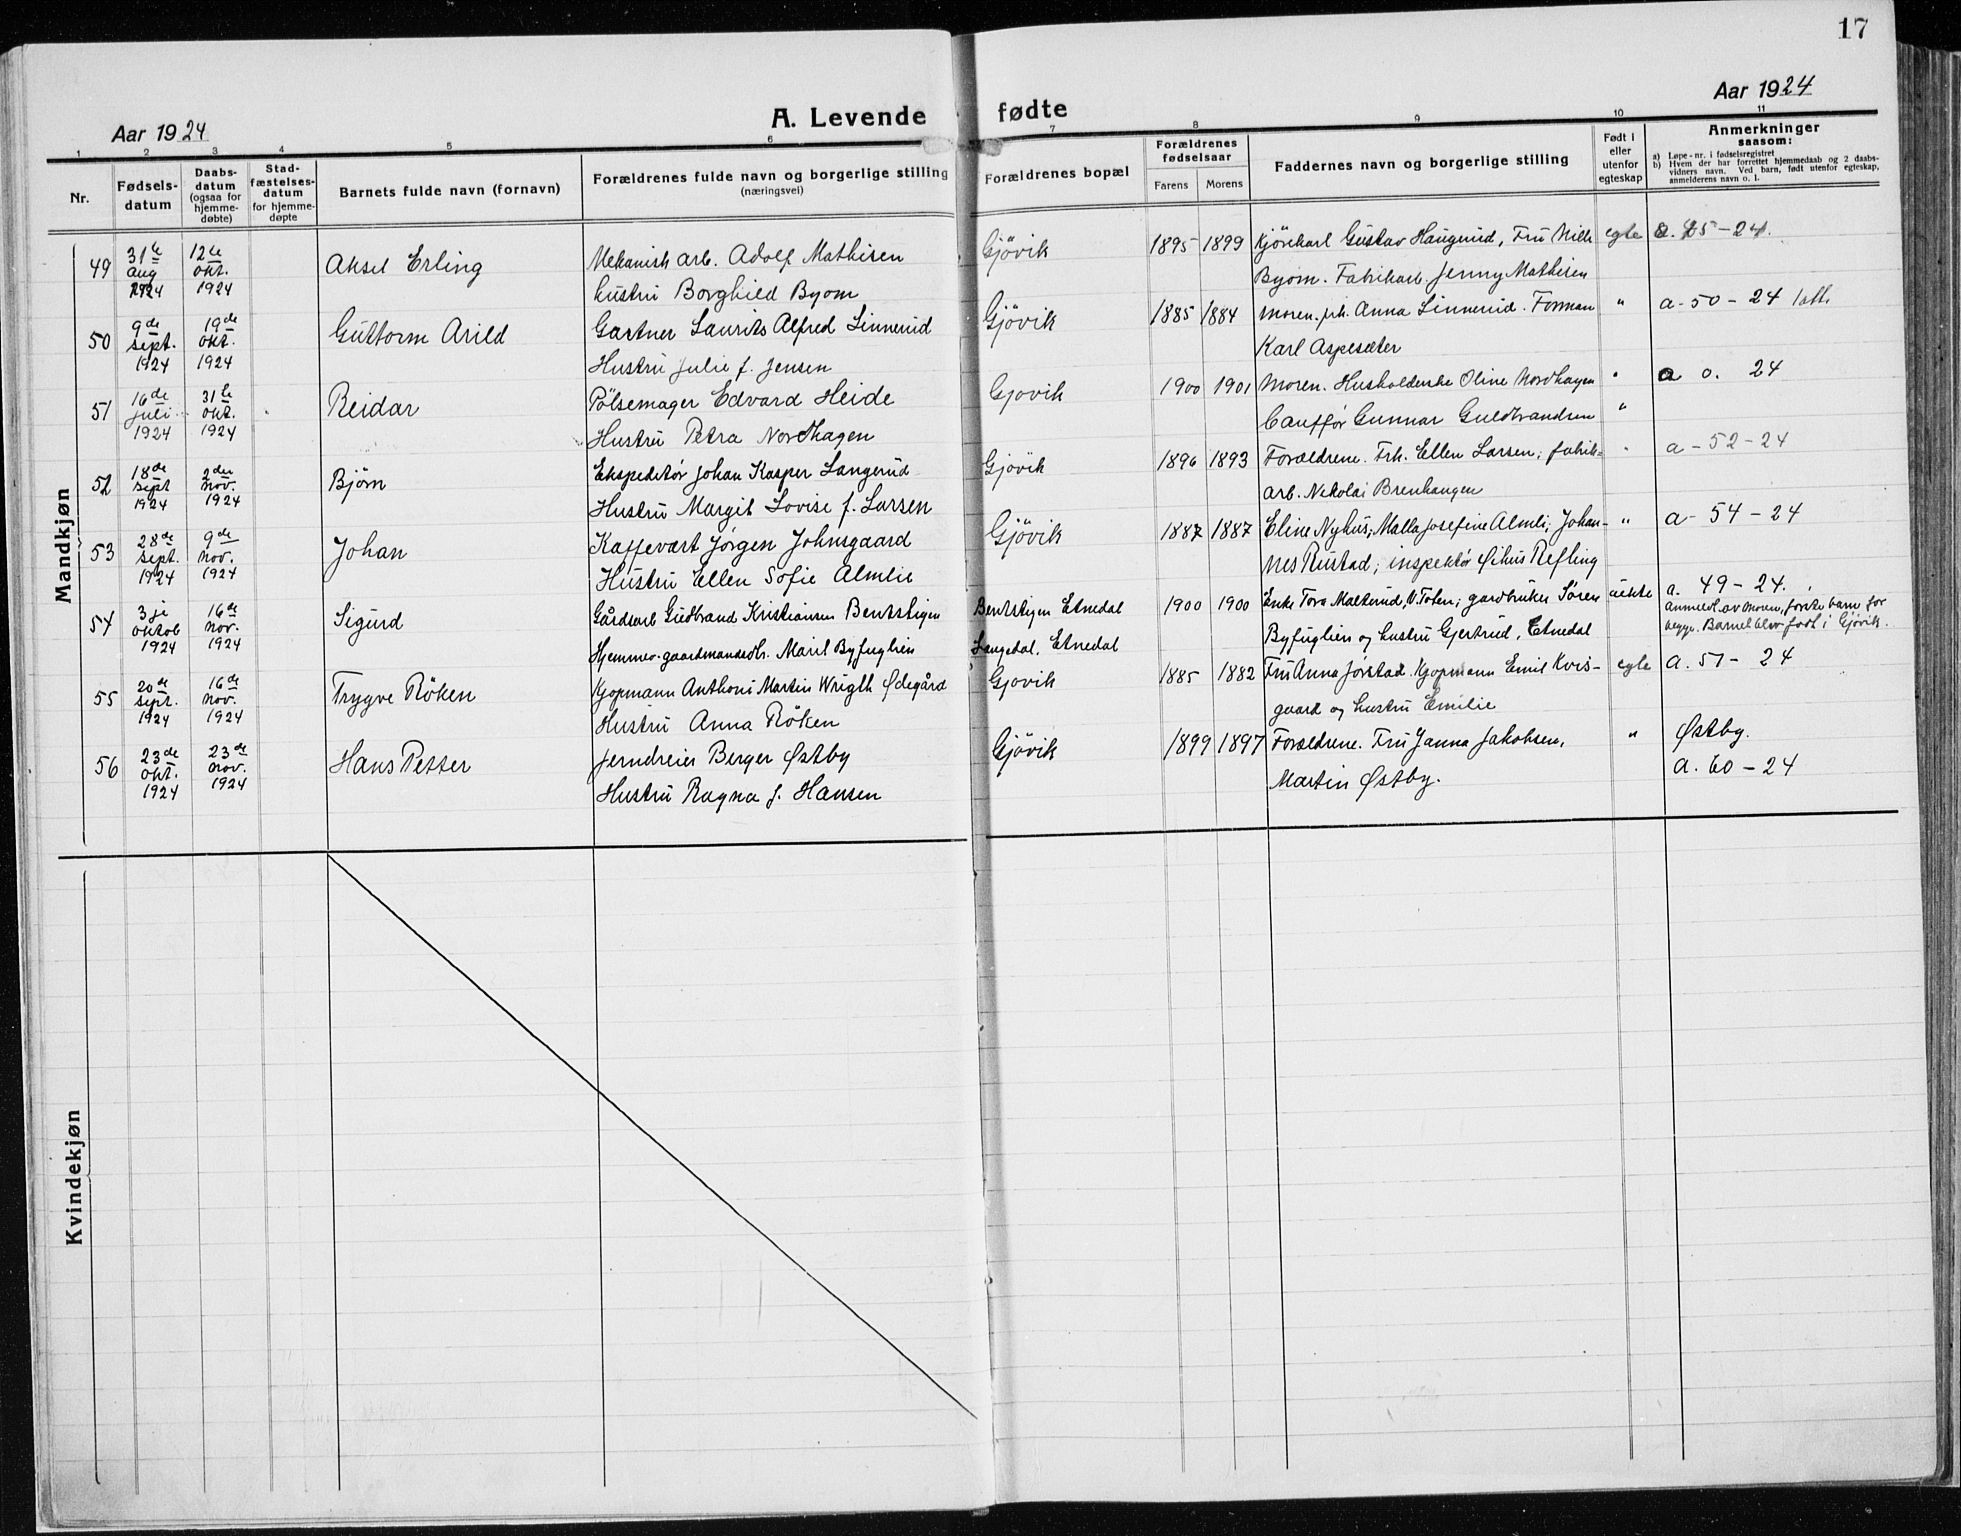 17
Aar 1924
A. Levende fødte
Aar 1924
1 2 3 4 5 6 7 8 9 10 11
Nr.
Fødsels-
datum
Daabs-
datum
(ogsaa for
hjemme-
døbte)
Stad-
fæstelses-
datum
for hjemme-
døpte
Barnets fulde navn (fornavn)
Forældrenes fulde navn og borgerlige stilling
(næringsvei)
Forældrenes bopæl
Forældrenes
fødselsaar
Farens Morens
Faddernes navn og borgerlige stilling
Født i
eller
utenfor
egteskap
Anmerkninger
saasom:
a) Løpe-nr. i fødselsregistret
b) Hvem der har forrettet hjemmedaab og 2 daabs-
vidners navn. Ved barn, født utenfor egteskap,
anmelderens navn o. l.
Mandkjøn
49 31te aug 1924 12te okt. 1924 Aksel Erling Mekanisk arb. Adolf Mathisen Gjövik 1895 1899 Kjörekarl Gustav Haugerud, Fru Milli egte a. 25-24.
hustru Borghild Byom Byom. Fabrikarb. Jenny Mathisen
50 9de sept. 1924 19de okt. 1924 Guttorm Arild Gartner Laurits Alfred Linnerud Gjövik 1885 1884 Moren, frk. Anna Linnerud. Forman " a-50-24
Hustru Julie f. Jensen Karl Aspesæter
51 16de juli 1924 31te okt. 1924 Reidar Pölsemager Edvard Heide Gjövik 1900 1901 Moren. Husholderske Oline Nordhagen " a o. 24
Hustru Petra Nordhagen Cauffør Gunnar Guldbrandsen "
52 18de sept 1924 2den nov. 1924 Bjørn Ekspeditör Johan Kasper Langerud Gjövik 1896 1893 Forældrene. Frk. Ellen Larsen; fabrik= " a-52-24
Hustru Margit Lovise f. Larsen arb. Nikolai Brenhaugen
53 28de sept. 1924 9de nov. 1924 Johan Kaffevært Jørgen Johnsgaard Gjövik 1887 1887 Eline Nyhus; Malla Josefine Almli; Johan- " a-54-24
Hustru Ellen Sofie Almlie nes Rustad; inspektør Øihus Refling
54 3je oktob 1924 16de nov. 1924 Sigurd Gårdsarb Gudbrand Kristiansen Bentsstigen Bentstigen Etnedal 1900 1900 Enke Tora Malterud, V. Toten; gardbruker Søren uekte a. 49-24.
Hjemmev. gaardmandsdtr. Marit Byfuglien Langedal, Etnedal Byfuglien og hustru Gjertrud, Etnedal Anmeldt av moren, første barn for
begge. Barnet blev født i Gjövik.
55 20de sept. 1924 16de nov. 1924 Trygve Röken Kjøpmann Anthoni Martin Wrigth Ødegård Gjövik 1885 1882 Fru Anna Jorstad. Kjøpmann Emil Kvis- egte a. 51-24
Hustru Anna Röken gaard og hustru Emilie
56 23de okt. 1924 23de nov. 1924 Hans Petter Jerndreier Berger Østby Gjövik 1899 1897 Forældrene. Fru Janna Jakobsen, " Østby.
Hustru Ragna f. Hansen Martin Østby. a. 60-24
Kvindekjøn